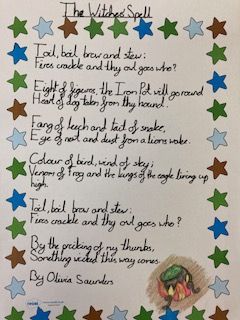 The Witches' Spell
Toil, boil brew and stew;
Fires crackle and thy owl goes who?
Eight of figures, the Iron Pot will go round
Heart of dog taken from thy hound.
Fang of leech and tail of snake,
Eye of newt and dust from a lions wake.
Colour of bird, wind of sky;
Venom of frog and the lungs of the eagle living up
high.
Toil, boil brew and stew;
Fires crackle and thy owl goes who?
By the pricking of my thumbs,
Something wicked this way comes.
By Olivia Saunders